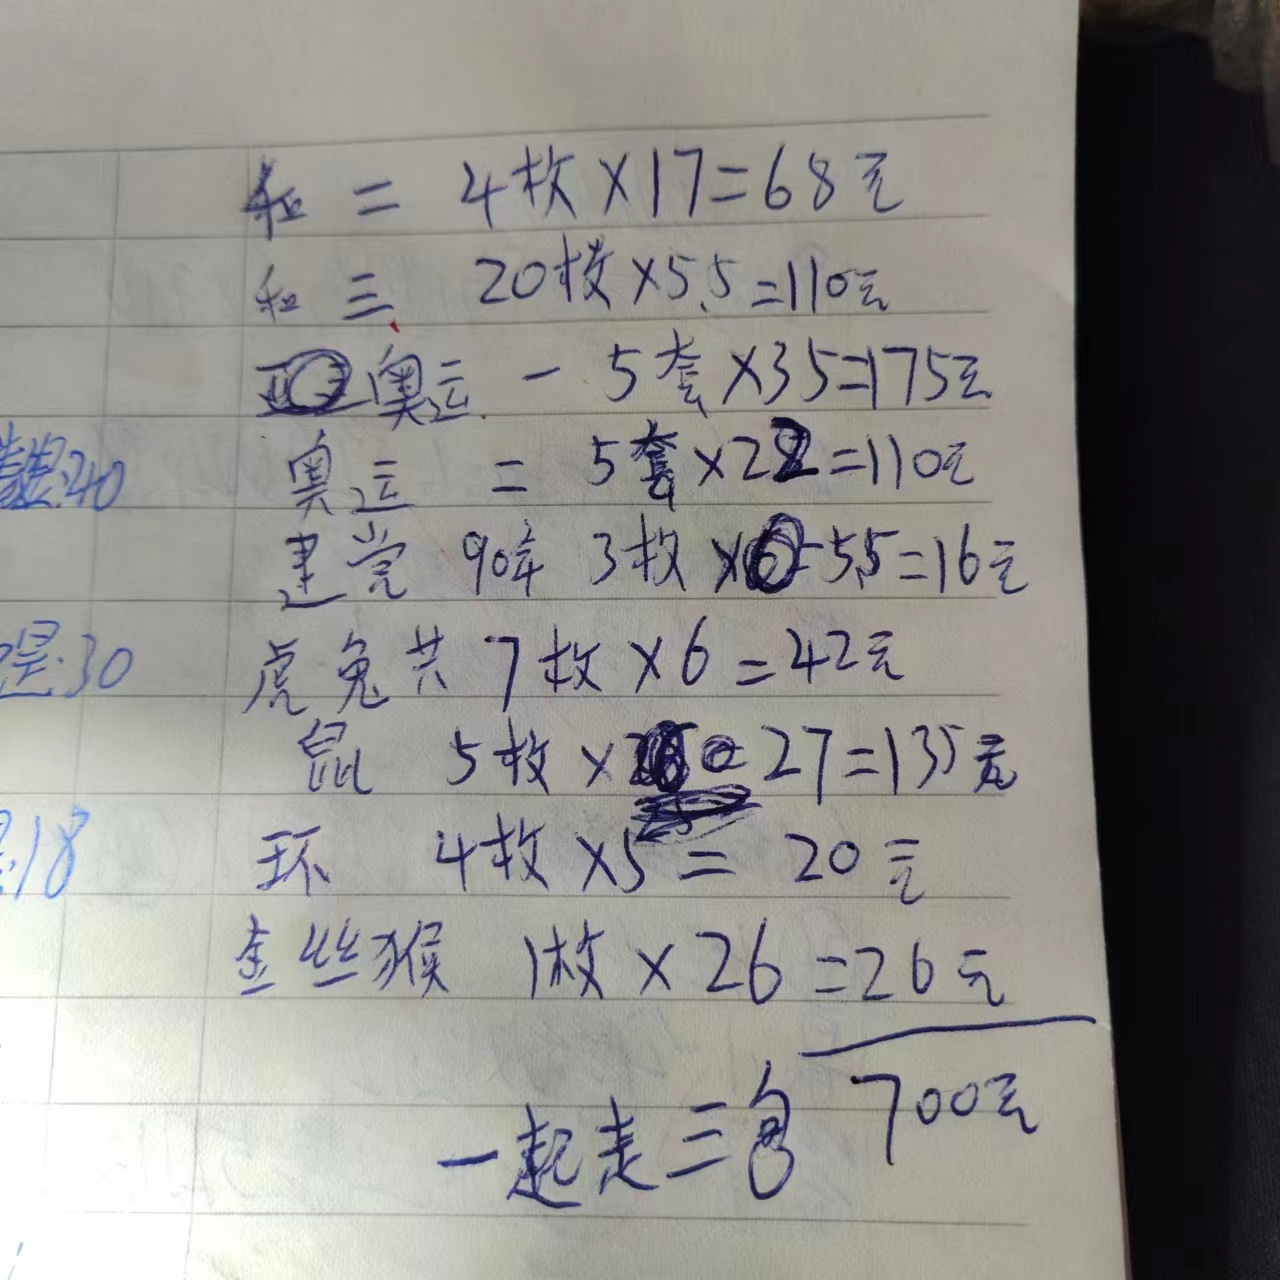 和二 4枚×17=68元
和三 20枚×5.5=110元
奥运一 5套×35=175元
奥运二 5套×22=110元
建党90年 3枚×5.5=16元
虎兔共7枚×6=42元
鼠 5枚×27=135元
环 4枚×5=20元
金丝猴 1枚×26=26元
700元
一起走三包
:40
:30
:18